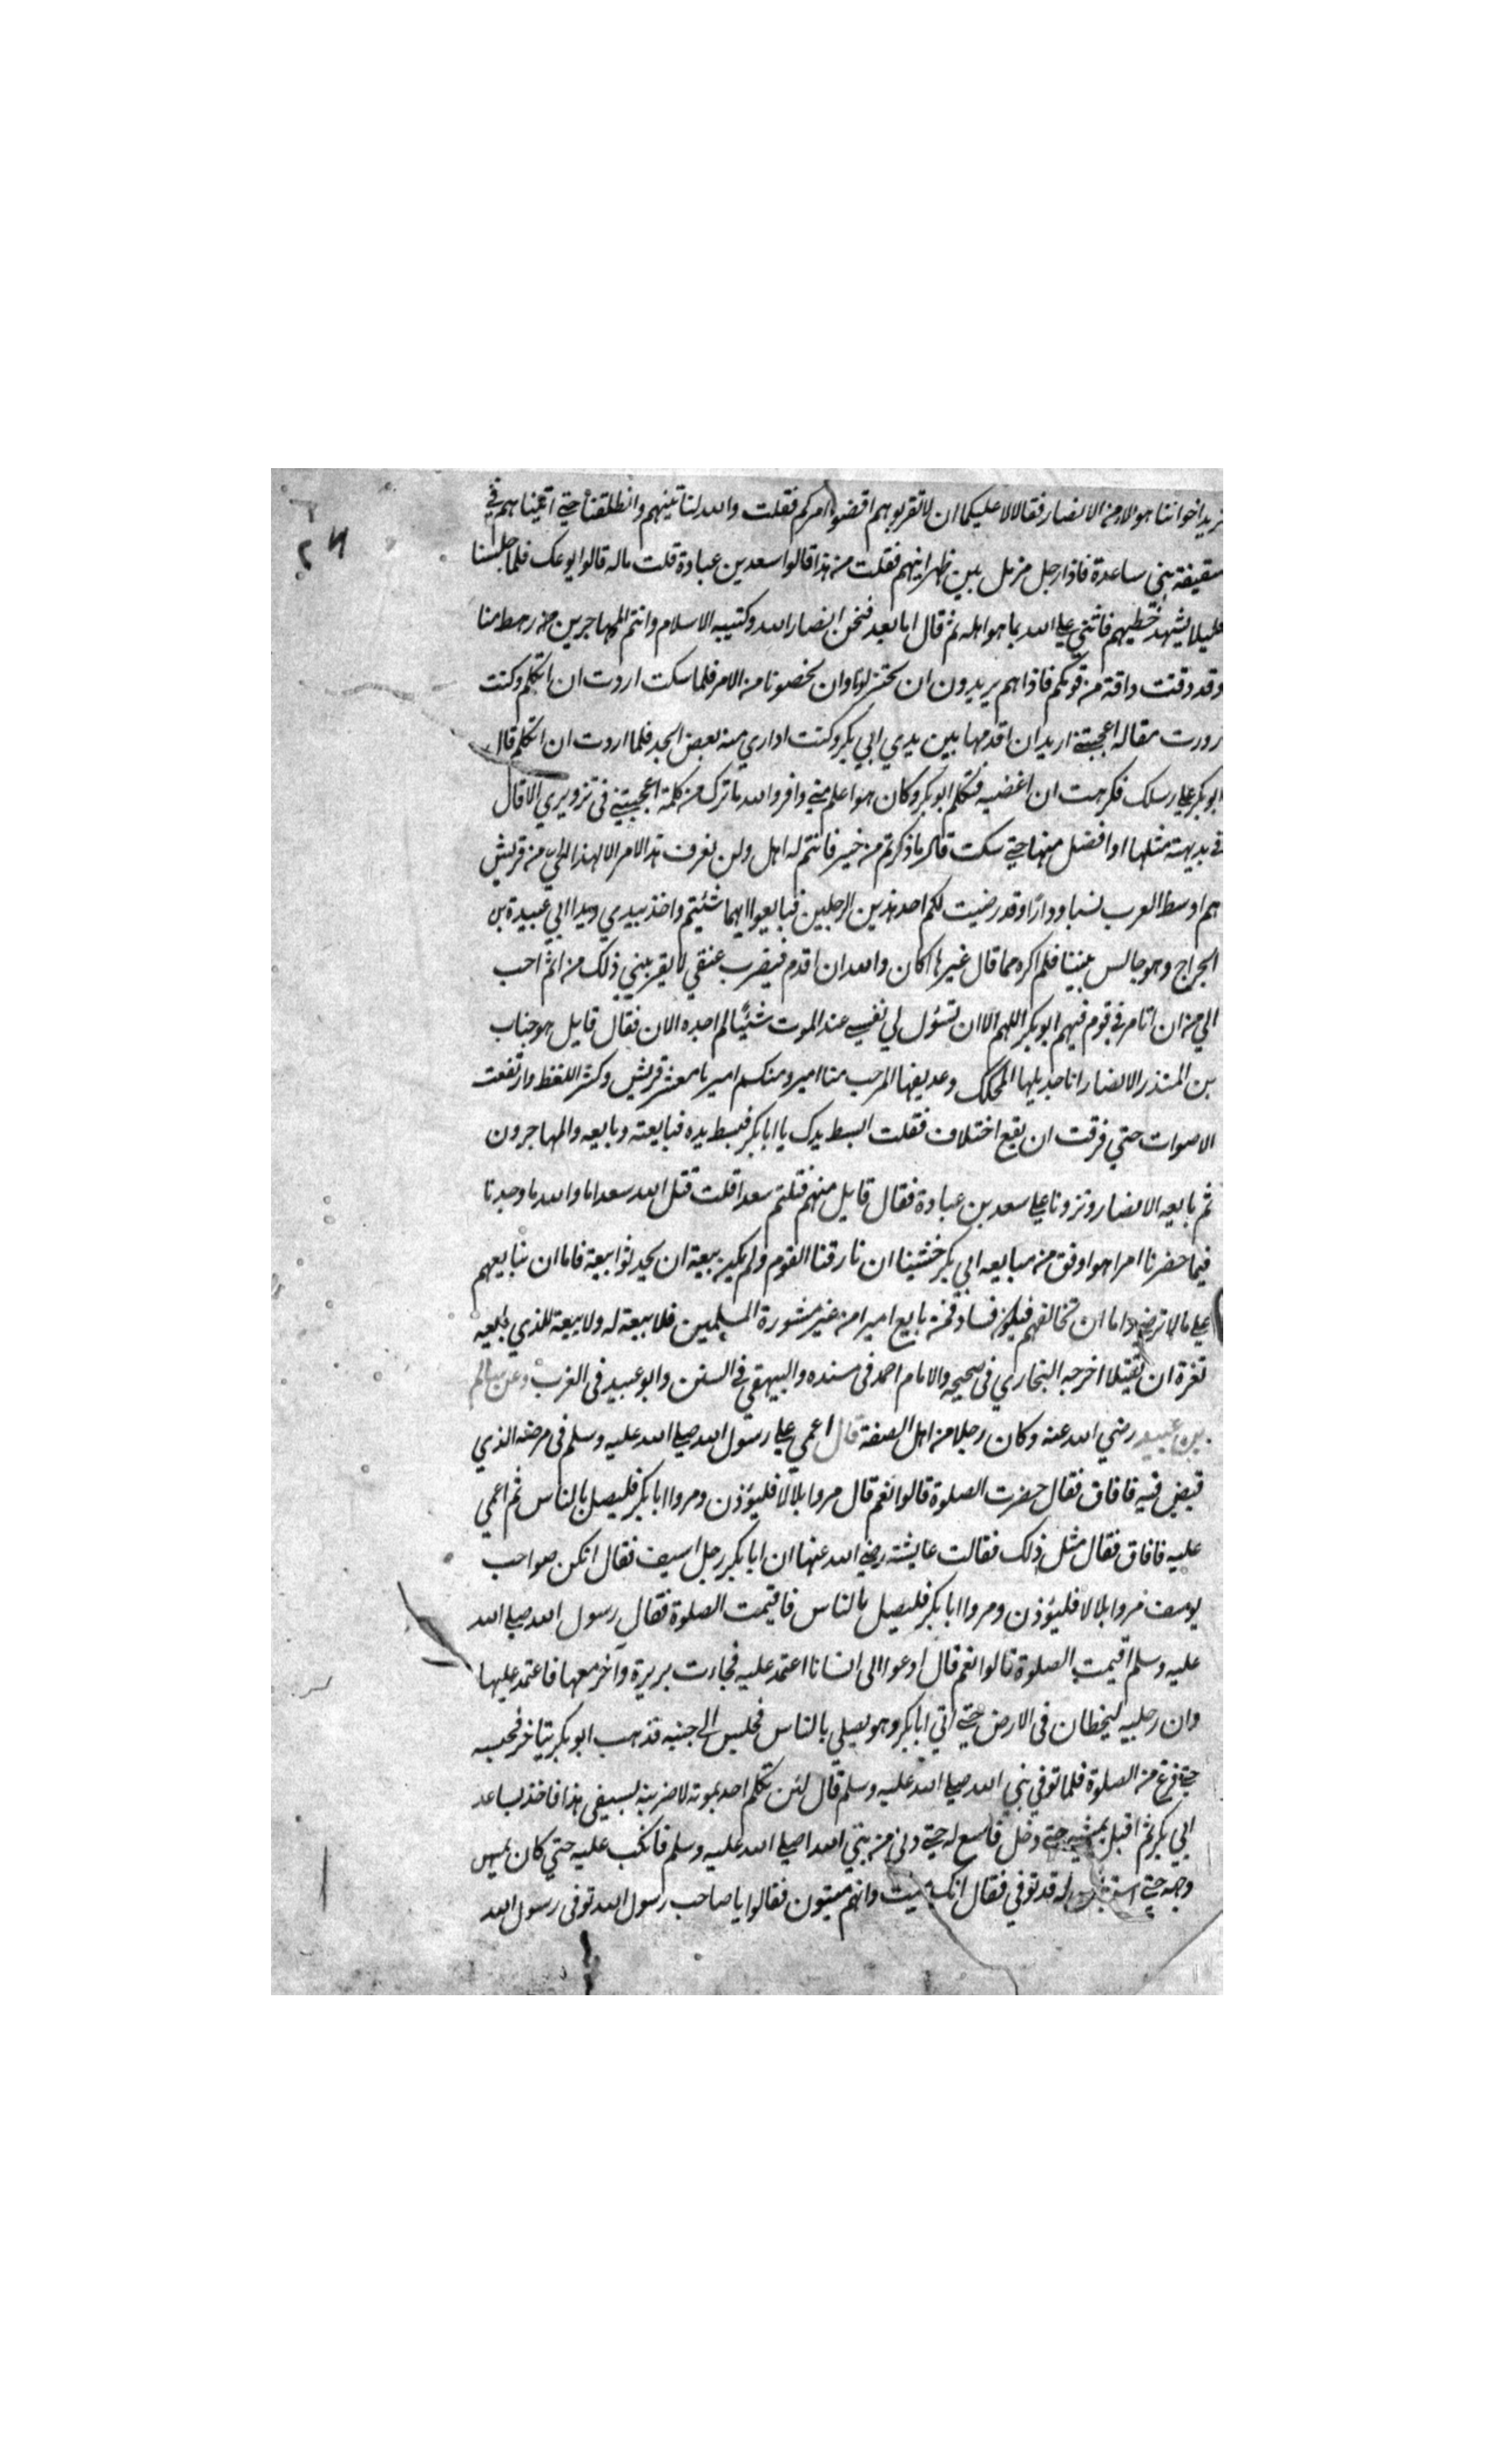 نريد اخواننا هولاء من الانصار فقالا لا عليكما ان لا تقربوهم اقضوا امركم فقلت والله لناتينهم وانطلقنا حتي اتيناهم في
سقيفة بني ساعدة فاذا رجل مزمل بين ظهرانيهم فقلت من هذا قالوا سعد بن عبادة قلت ماله قالوا يوعك فلما جلسنا
قليلا يشهد خطيبهم فاثني علي الله بما هو اهله ثم قال اما بعد فنحن انصار الله وكتيبه الاسلام وانتم المهاجرين من رهط منا
وقد دفت دافة من قومكم فاذا هم يريدون ان يختزلونا وان يخصونا من الامر فلما سكت اردت ان اتكلم وكنت
زورت مقاله اعجبتني اريد ان اقدمها بين يدي ابي بكر وكنت اداري منه بعض الحد فلما اردت ان اتكلم قال
ابو بكر علي رسلك فكرهت ان اغضبه فتكلم ابو بكر وكان هو اعلم مني وافر والله ما ترك من كلمة اعجبتني في تزويري الا قال
في بديهته مثلها او افضل منها حتي سكت قال ما ذكرتم من خير فانتم له اهل ولن نعرف هذا الامر الا لهذا الحي من قريش
هم اوسط العرب نسبا ودارًا وقد رضيت لكم احد هذين الرجلين فبايعوا ايهما شئيتم واخذ بيدي ويدا ابي عبيدة بن
الجراح وهو جالس بيننا فلم اكره مما قال غيرها كان والله ان اقدم فيضرب عنقي لا يقربيني ذلك من اثم احب
الي من ان اتامر في قوم فيهم ابو بكر اللهم الا ان تسؤل لي نفسي عند الموت شئيًا لم اجده الان فقال قايل هو حباب
بن المنذر الانصار انا جديلها المحكك وعديقها المرحب منا امير ومنكم امير يا معشر قريش وكثر اللغط وارتفعت
الاصوات حتي فرقت ان يقع اختلاف فقلت ابسط يدك يا ابا بكر فبسط يده فبايعته وبايعه والمهاجرون
ثم بايعه الانصار ونزونا علي سعد بن عبادة فقال قايل منهم قتلتم سعدا قلت قتل الله سعدا اما والله ما وجدنا
فيما حضرنا امرا هو اوفق من مبايعه ابي بكر خشينا ان فارقنا القوم ولم يكن بيعة ان يحدثوا بيعة فاما ان نبايعهم
علي ما لا نرضي واما ان نخالفهم فيكون فساد فمن بايع اميرا من غير مشورة المسلمين فلا بيعة له ولا بيعة للذي بايعه
تغرة ان يقتلا اخرجه البخاري في صحيحه والامام احمد في مسنده والبيهقي في السنن وابو عبيد في الغرب وعن سالم
بن عبيد رضي الله عنه وكان رجلا من اهل الصفة قال اغمي علي رسول الله صلي الله عليه وسلم في مرضه الذي
قبض فيه فافاق فقال حضرت الصلوة قالوا نعم قال مروا بلالا فليؤذن ومروا ابا بكر فليصل بالناس ثم اغمي
عليه فافاق فقال مثل ذلك فقالت عايشته رضي الله عنها ان ابا بكر رجل اسيف فقال انكن صواحب
يوسف مروا بلالا فليؤذن ومروا ابا بكر فليصل بالناس فاقيمت الصلوة فقال رسول الله صلي الله
عليه وسلم اقيمت الصلوة قالوا نعم قال ادعوا الي انسانا اعتمد عليه فجاءت بريرة وآخر معها فاعتمد عليها
وان رجليه ليخطان في الارض حتي اتي ابا بكر وهو يصلي بالناس فجلس الي جنبه فذهب ابو بكر يتاخر فحبسه
حتي فرغ من الصلوة فلما توفي نبي الله صلي الله عليه وسلم قال لئن تكلم احد بموته لاضربنه بسيفي هذا فاخذ بساعد
ابي بكر ثم اقبل يمشي حتي دخل فاسع له حتي دني من نبي الله صلي الله عليه وسلم فانكب عليه حتي كان يمس
وجهه حتي له قد توفي فقال انك ميت وانهم ميتون فقالوا يا صاحب رسول الله توفي رسول الله